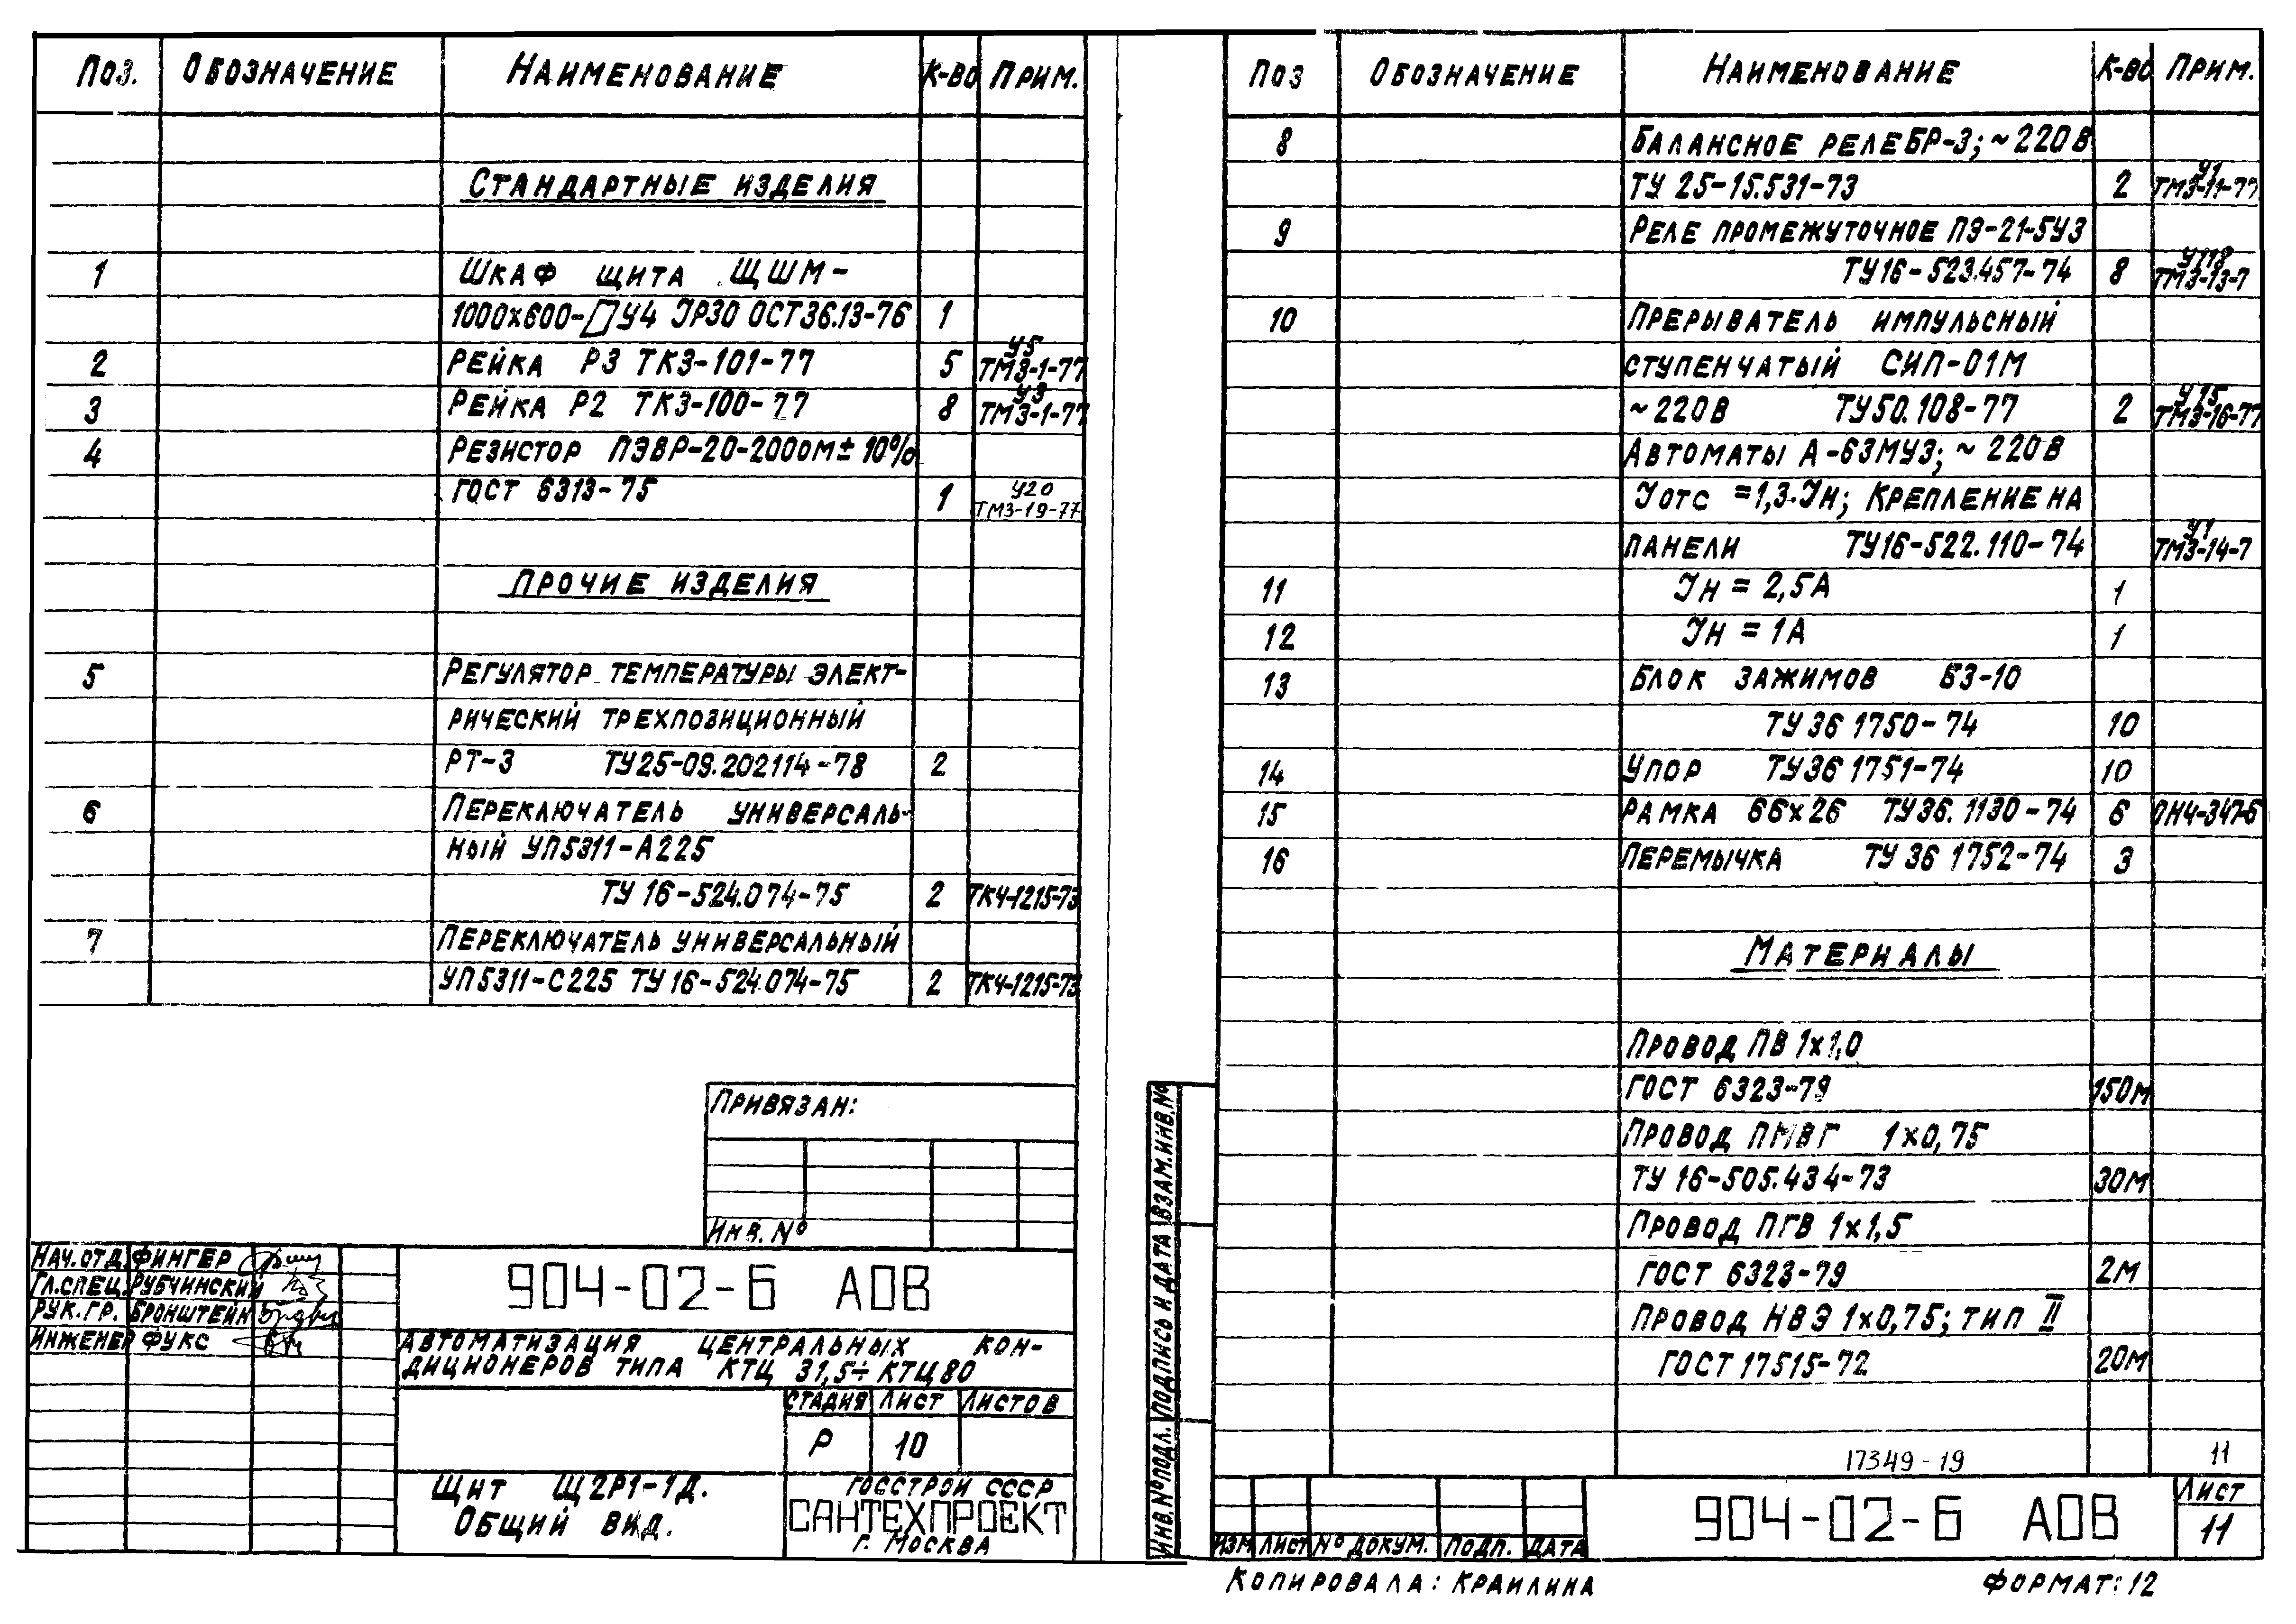 Поз. Обозначение Наименование К-во Прим.
Стандартные изделия
1 Шкаф щита ЩШМ-
1000х600-▱У4 IР30 ОСТ36.13-76 1
У5
2 Рейка Р3 ТК3-101-77 5 ТМ3-1-77
У3
3 Рейка Р2 ТК3-100-77 8 ТМ3-1-77
4 Резистор ПЭВР-20-200Ом±10%
ГОСТ 6313-75 1 У20
ТМ3-19-77
Прочие изделия
5 Регулятор температуры элект-
рический трехпозиционный
РТ-3 ТУ25-09.202114-78 2
6 Переключатель универсаль-
ный УП5311-А225
ТУ 16-524.074-75 2 ТК4-1215-73
7 Переключатель универсальный
УП5311-С225 ТУ 16-524.074-75 2 ТК4-1215-73
Привязан:
Инв. №
Нач. отд. Фингер
Гл. спец. Рубчинский
Рук. гр. Бронштейн
Инженер Фукс
904-02-6 АОВ
Автоматизация центральных кон-
диционеров типа КТЦ 31,5÷КТЦ80
Стадия Лист Листов
Р 10
Щит Щ2Р1-1Д.
Общий вид.
Госстрой СССР
САНТЕХПРОЕКТ
г. Москва
Поз Обозначение Наименование К-во Прим.
8 Балансное реле БР-3; ~220В
У1
ТУ 25-15.531-73 2 ТМ3-11-77
9 Реле промежуточное ПЭ-21-5У3
У118
ТУ16-523.457-74 8 ТМ3-13-7
10 Прерыватель импульсный
ступенчатый СИП-01М
У15
~220В ТУ50.108-77 2 ТМ3-16-77
Автоматы А-63МУ3; ~220В
Iотс =1,3·Iн; Крепление на
У1
панели ТУ16-522.110-74 ТМ3-14-7
11 Iн = 2,5А 1
12 Iн = 1А 1
13 Блок зажимов БЗ-10
ТУ 36 1750-74 10
14 Упор ТУ36 1751-74 10
15 Рамка 66х26 ТУ36.1130-74 6 ОН4-347-6
16 Перемычка ТУ 36 1752-74 3
Материалы
Провод ПВ 1х1,0
ГОСТ 6323-79 150м
Провод ПМВГ 1х0,75
ТУ 16-505.434-73 30м
Провод ПГВ 1х1,5
ГОСТ 6323-79 2м
Провод НВЭ 1х0,75; тип II
ГОСТ 17515-72 20м
17349-19 11
Инв. № подл. Подпись и дата Взам. инв. №
Изм Лист № докум. Подп. Дата
904-02-6 АОВ
Лист
11
Копировала: Краилина Формат: 12